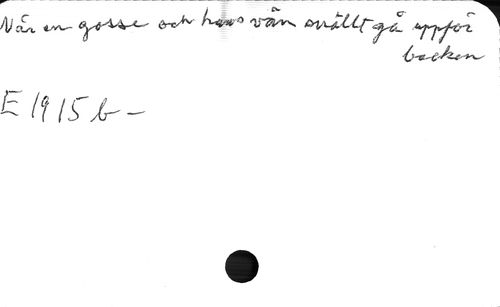 När en gosse och hans vän snällt gå uppför
backen
E 1915 b -